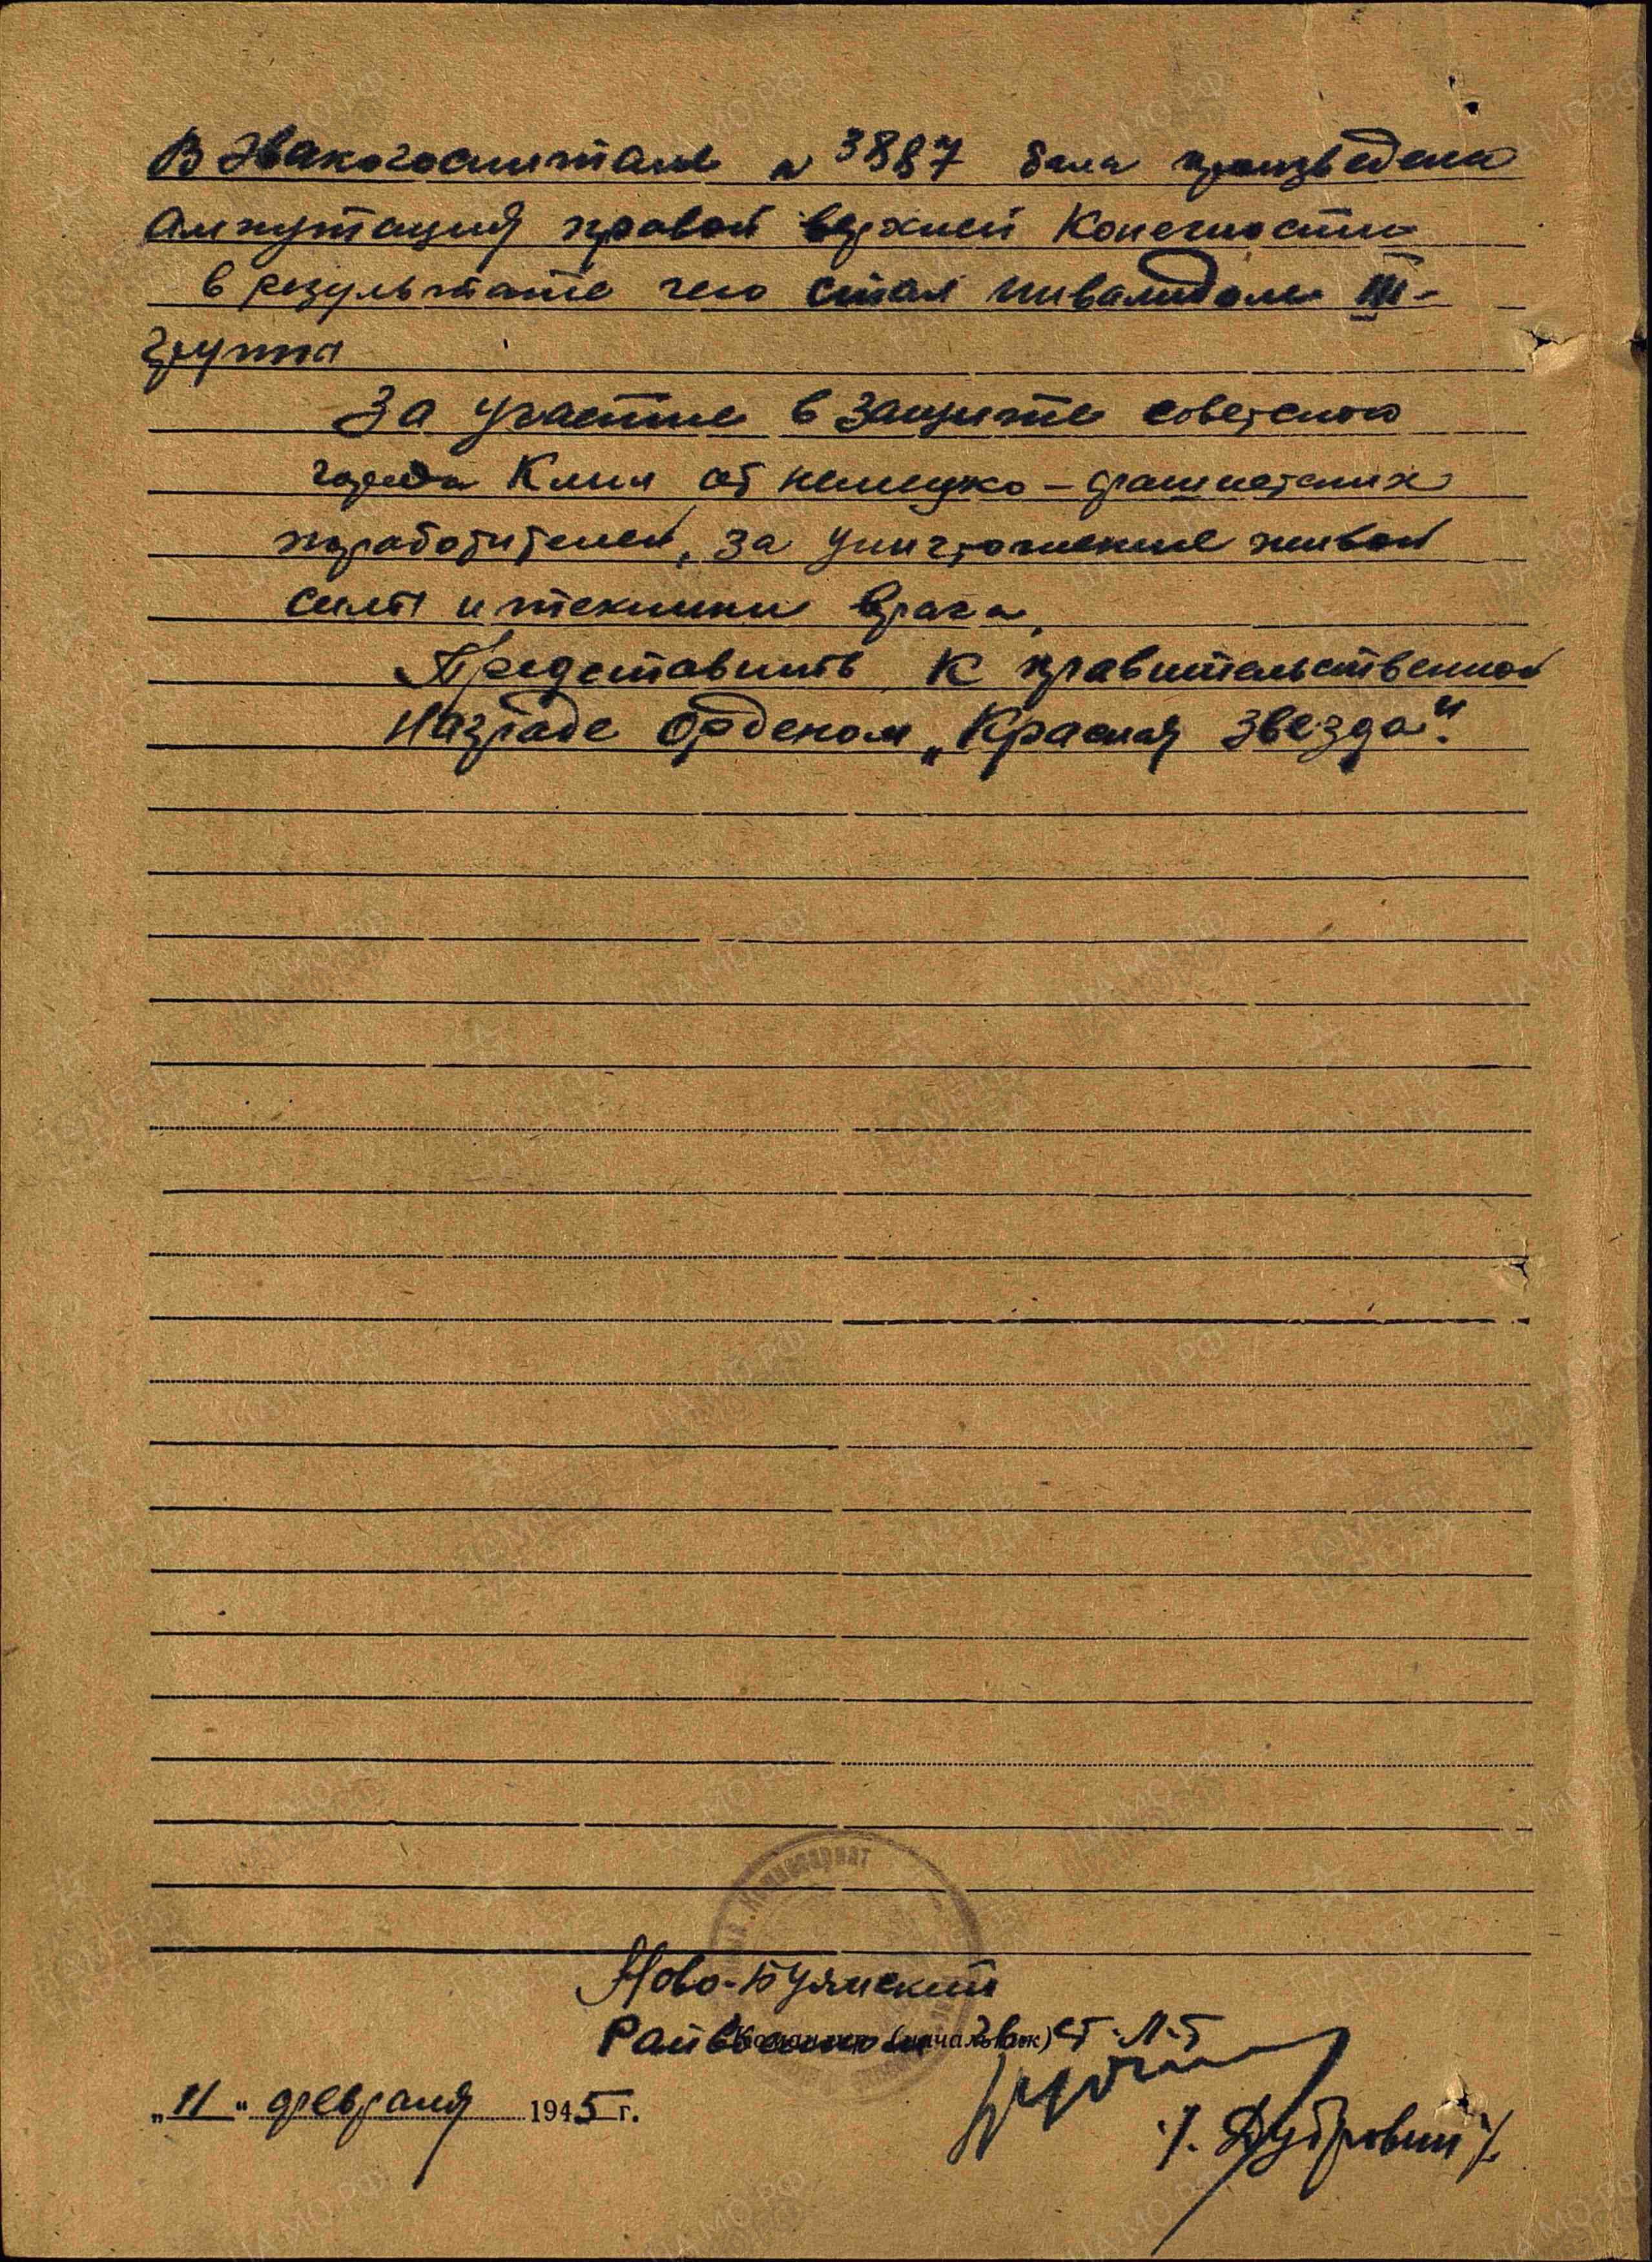 В Эвакогоспитале № 3887 была произведена
Ампутация правой верхней Конечности
в результате чего стал инвалидом III-
группы
За участие в защите советского
города Клин от немецко-фашистских
поработителей, за уничтожение живой
силы и техники врага,
Представить к правительственной
Награде Орденом „Красная Звезда“.
Ново-Буянский
Райвоенком ст. л-т
(начальник)
„11“ февраля 1945 г.
/. Дубровин /.